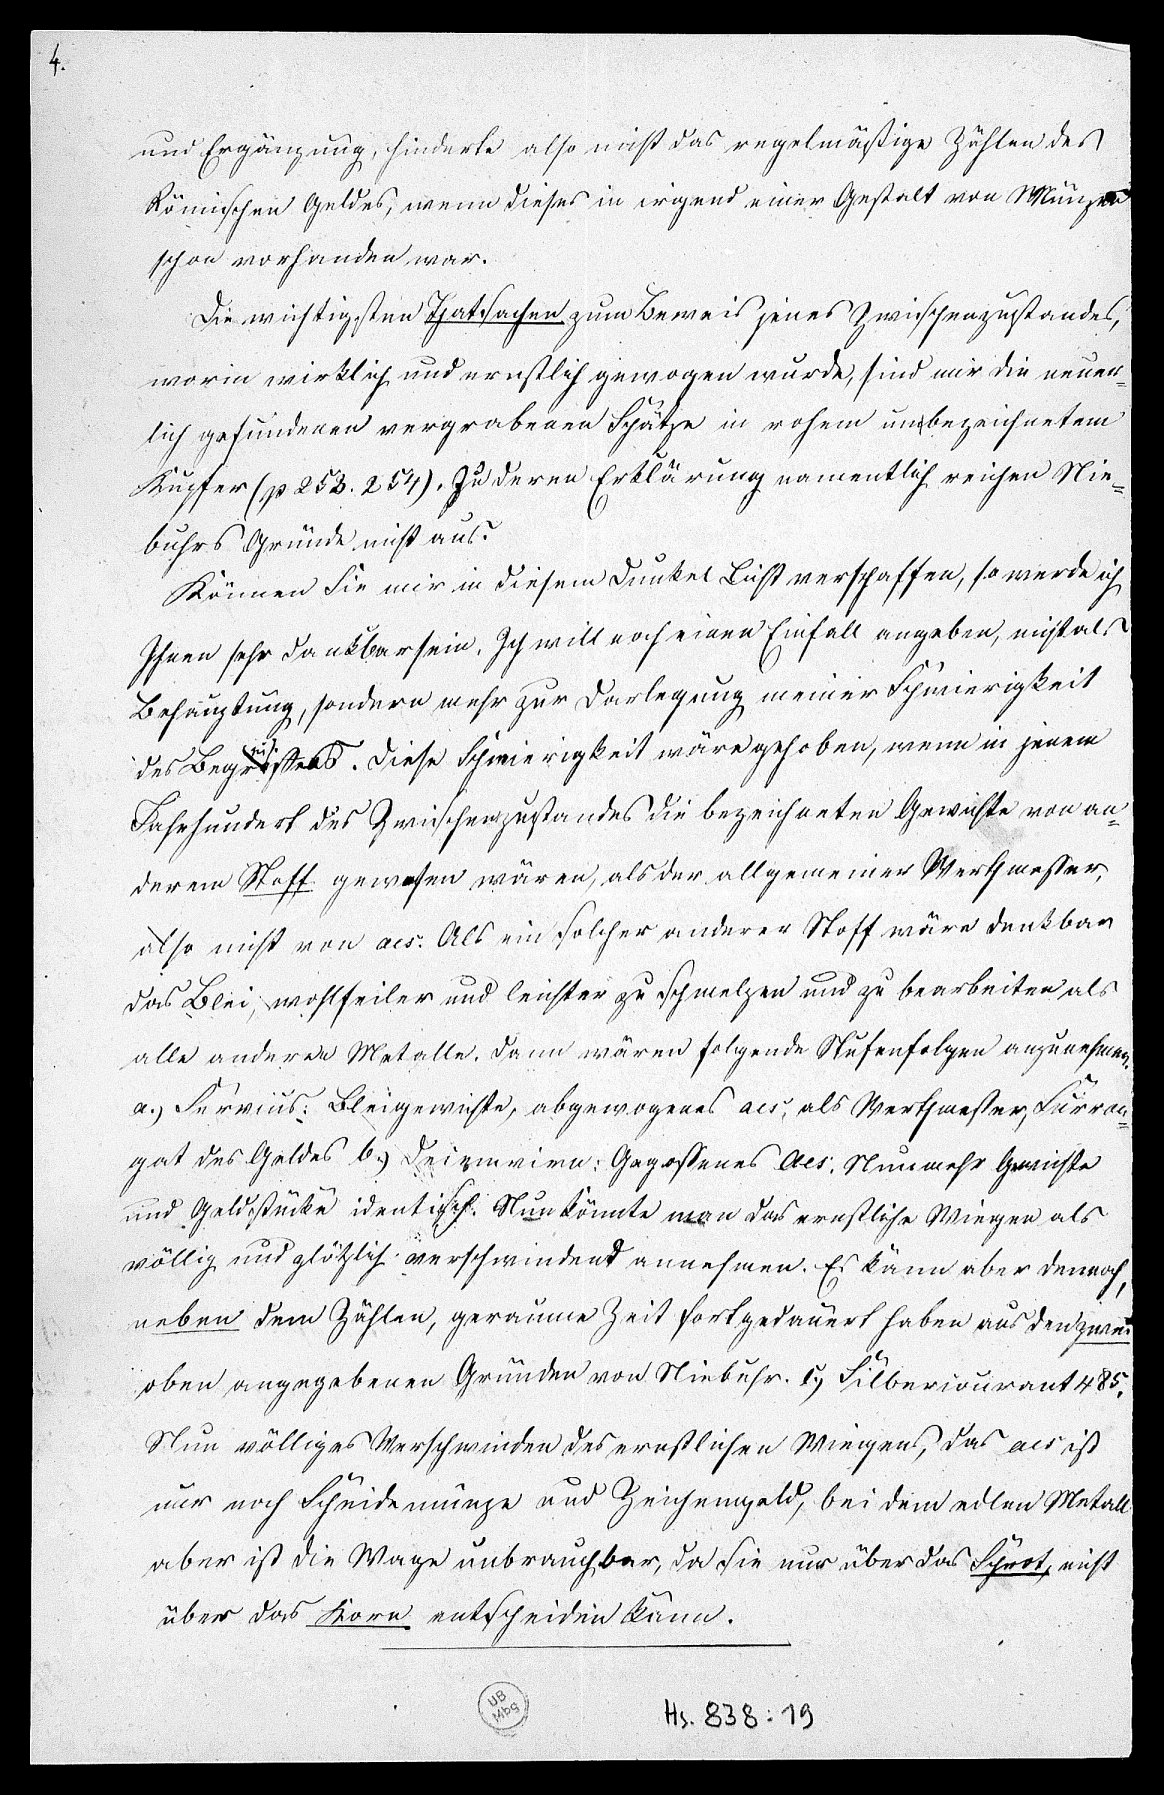 4.
und Ergänzung, hinderte also nicht das regelmäßige Zählen des
Römischen Geldes, wenn dieses in irgend einer Gestalt von Münzen
schon vorhanden war.
Die wichtigsten Thatsachen zum Beweis jenes Zwischenzustandes,
worin wirklich und ernstlich gewogen wurde, sind mir die neuer=
lich gefundenen vergrabenen Schätze in rohem unbezeichnetem
Kupfer (p 253. 254). Zu deren Erklärung namentlich reichen Nie=
buhrs Gründe nicht aus.
Können Sie mir in diesem Dunkel Licht verschaffen, so werde ich
Ihnen sehr dankbar sein. Ich will noch einen Einfall angeben, nicht als
Behauptung, sondern mehr zur Darlegung meiner Schwierigkeit
des Begreifens. Diese Schwierigkeit wäre gehoben, wenn in jenem
Jahrhundert des Zwischenzustandes die bezeichneten Gewichte von an=
derem Stoff gewesen wären, als der allgemeiner Werthmesser,
also nicht von aes. Als ein solcher anderer Stoff wäre denkbar
das Blei, wohlfeiler und leichter zu schmelzen und zu bearbeiten als
alle anderen Metalle. Dann wären folgende Stufenfolgen anzunehmen.
a.) Servius: Bleigewichte, abgewogenes aes, als Werthmesser, Surro=
gat des Geldes b.) Decemvirn: Gegossenes Aes. Nunmehr Gewichte
und Geldstücke identisch. Nun könnte man das ernstliche Wiegen als
völlig und plötzlich verschwindend annehmen. Es kann aber dennoch,
neben dem Zählen, geraume Zeit fortgedauert haben aus den zwei
oben angegebenen Gründen von Niebuhr. c.) Silbercourant 485.
Nun völliges Verschwinden des ernstlichen Wiegens, das aes ist
nur noch Scheidemünze und Zeichengeld, bei dem edlen Metall
aber ist die Wage unbrauchbar, da sie nur über das Schrot, nicht
über das Korn entscheiden kann.
UB
Mbg
Hs. 838:19